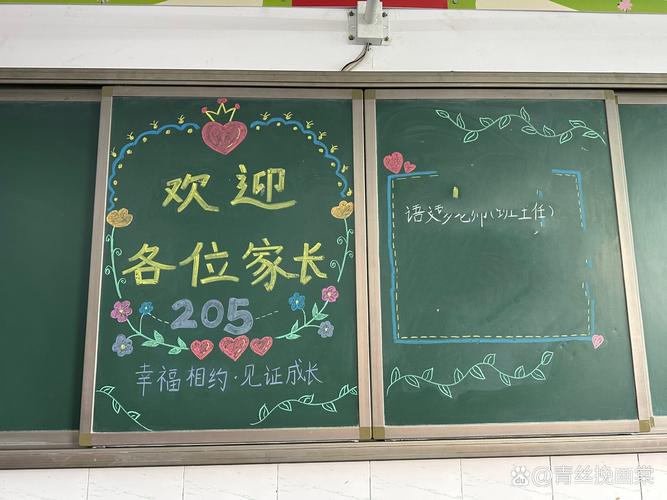 欢迎
各位家长
205
幸福相约·见证成长
语文老师(班主任)
青丝挽画棠